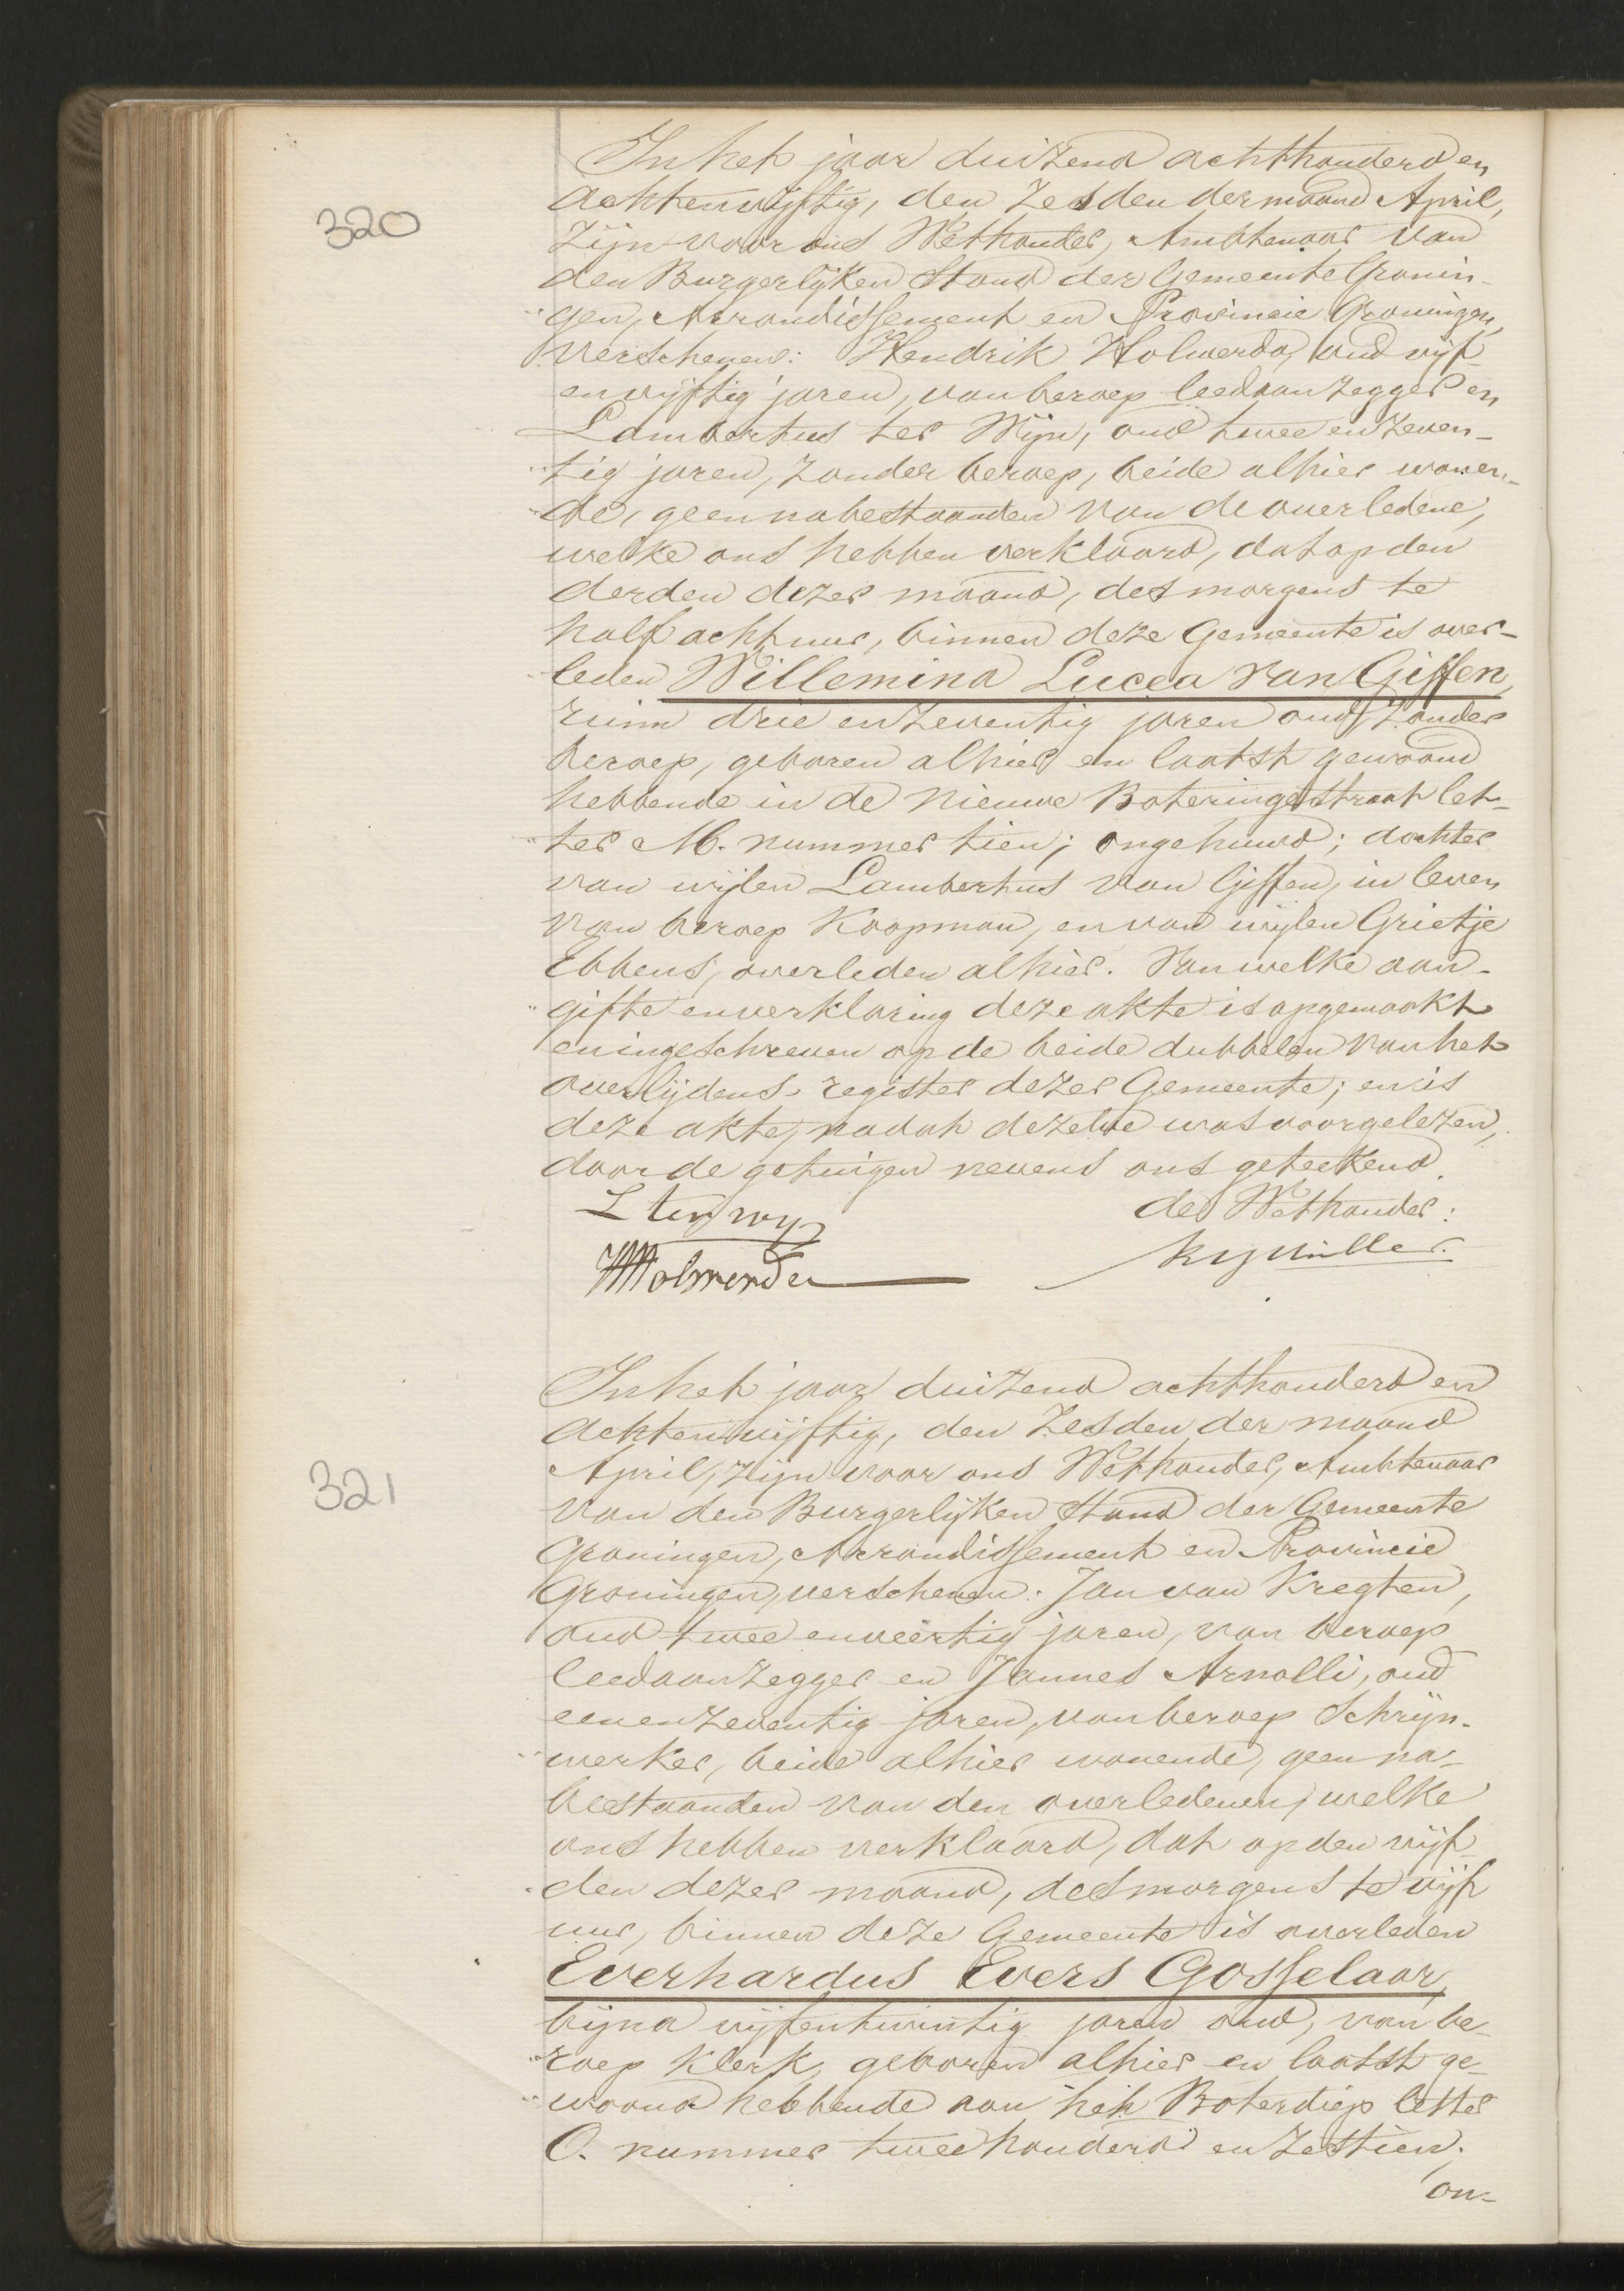 In het jaar duizend achthonderd en
320
achtenvijftig, den zesden der maand April,
zijn voor ons Wethouder, Ambtenaar van
den Burgerlijken Stand der Gemeente Gronin-
gen, Arrondissement en Provincie Groningen,
verschenen: Hendrik Holwerda, oud vijf
en vijftig jaren, van beroep leedaanzegger en
Lambertus ter Wijn, oud twee en zeven-
tig jaren, zonder beroep, beide alhier wonen-
de, geen nabestaanden van de overledene,
welke ons hebben verklaard, dat op den
derden dezer maand, des morgens te
half acht uur, binnen deze Gemeente is over-
leden Willemina Lucea van Giffen,
ruim drie en zeventig jaren oud, zonder
beroep, geboren alhier en laatst gewoond
hebbende in de Nieuwe Boteringestraat let-
ter M. nummer tien; ongehuwd; dochter
van wijlen Lambertus van Giffen, in leven
van beroep Koopman, en van wijlen Grietje
Ebbens, overleden alhier. Van welke aan-
gifte en verklaring deze akte is opgemaakt
en ingeschreven op de beide dubbelen van het
overlijdens-register dezer Gemeente; en is
deze akte, nadat dezelve was voorgelezen,
door de getuigen nevens ons geteekend.
L ter wijn
de Wethouder:
HHolwerda
In het jaar duizend achthonderd en
achtenvijftig, den zesden der maand
April, zijn voor ons Wethouder, Ambtenaar
321
van den Burgerlijken Stand der Gemeente
Groningen, Arrondissement en Provincie
Groningen, verschenen: Jan van Kregten,
oud twee en veertig jaren, van beroep
leedaanzegger en Jannes Arnolli, oud
eenenzeventig jaren, van beroep Schrijn-
werker, beide alhier wonende, geen na-
bestaanden van den overledenen, welke
ons hebben verklaard, dat op den vijf-
den dezer maand, des morgens te vijf
uur, binnen deze Gemeente is overleden
Everhardus Evers Gosselaar,
bijna vijfentwintig jaren oud, van be-
roep klerk, geboren alhier en laatst ge-
woond hebbende aan het Boterdiep letter
O. nummer tweehonderd en zestien;
on-